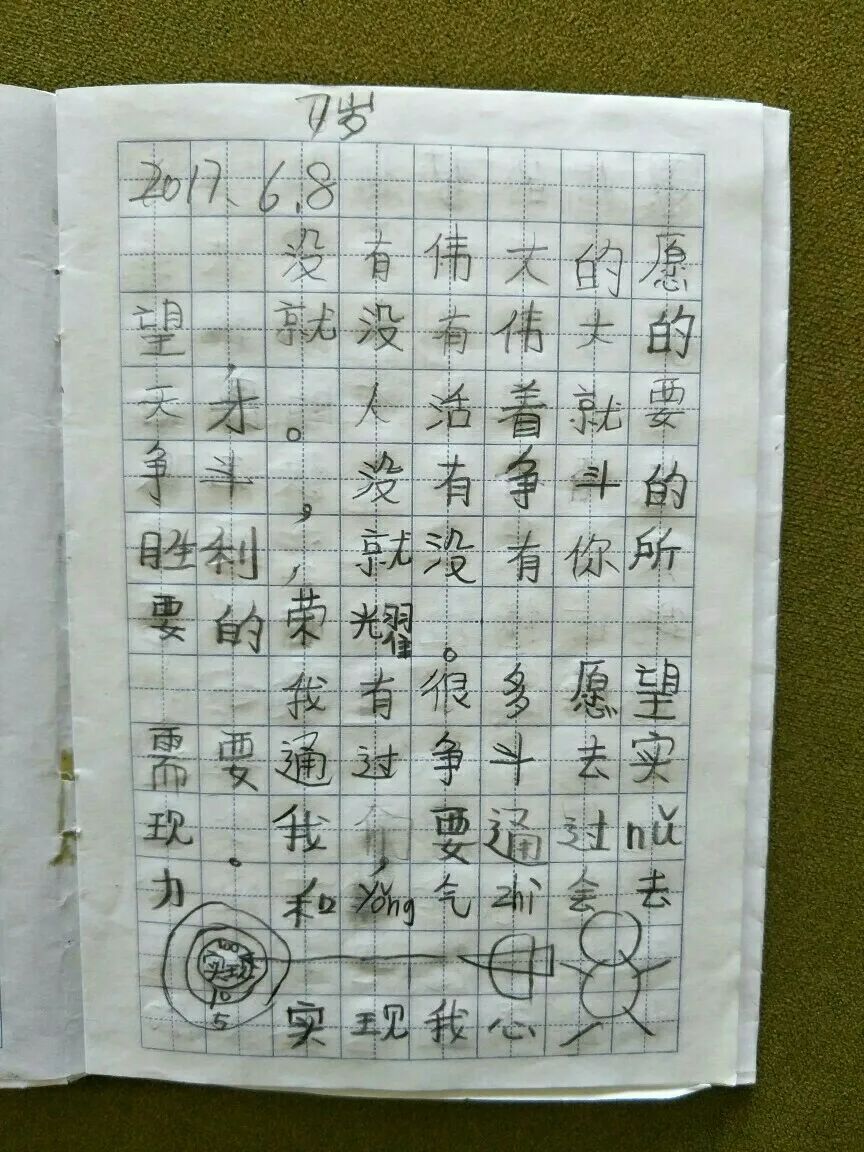 7岁
2017.6.8
没有伟大的愿
望，就没有伟大的
天才。人活着就要
争斗，没有争斗的
胜利，就没有你所
要的荣耀。
我有很多愿望
需要通过争斗去实
现。我，要通过nǔ
力和yǒng气zhì会去
100
实现
10
5
实现我心